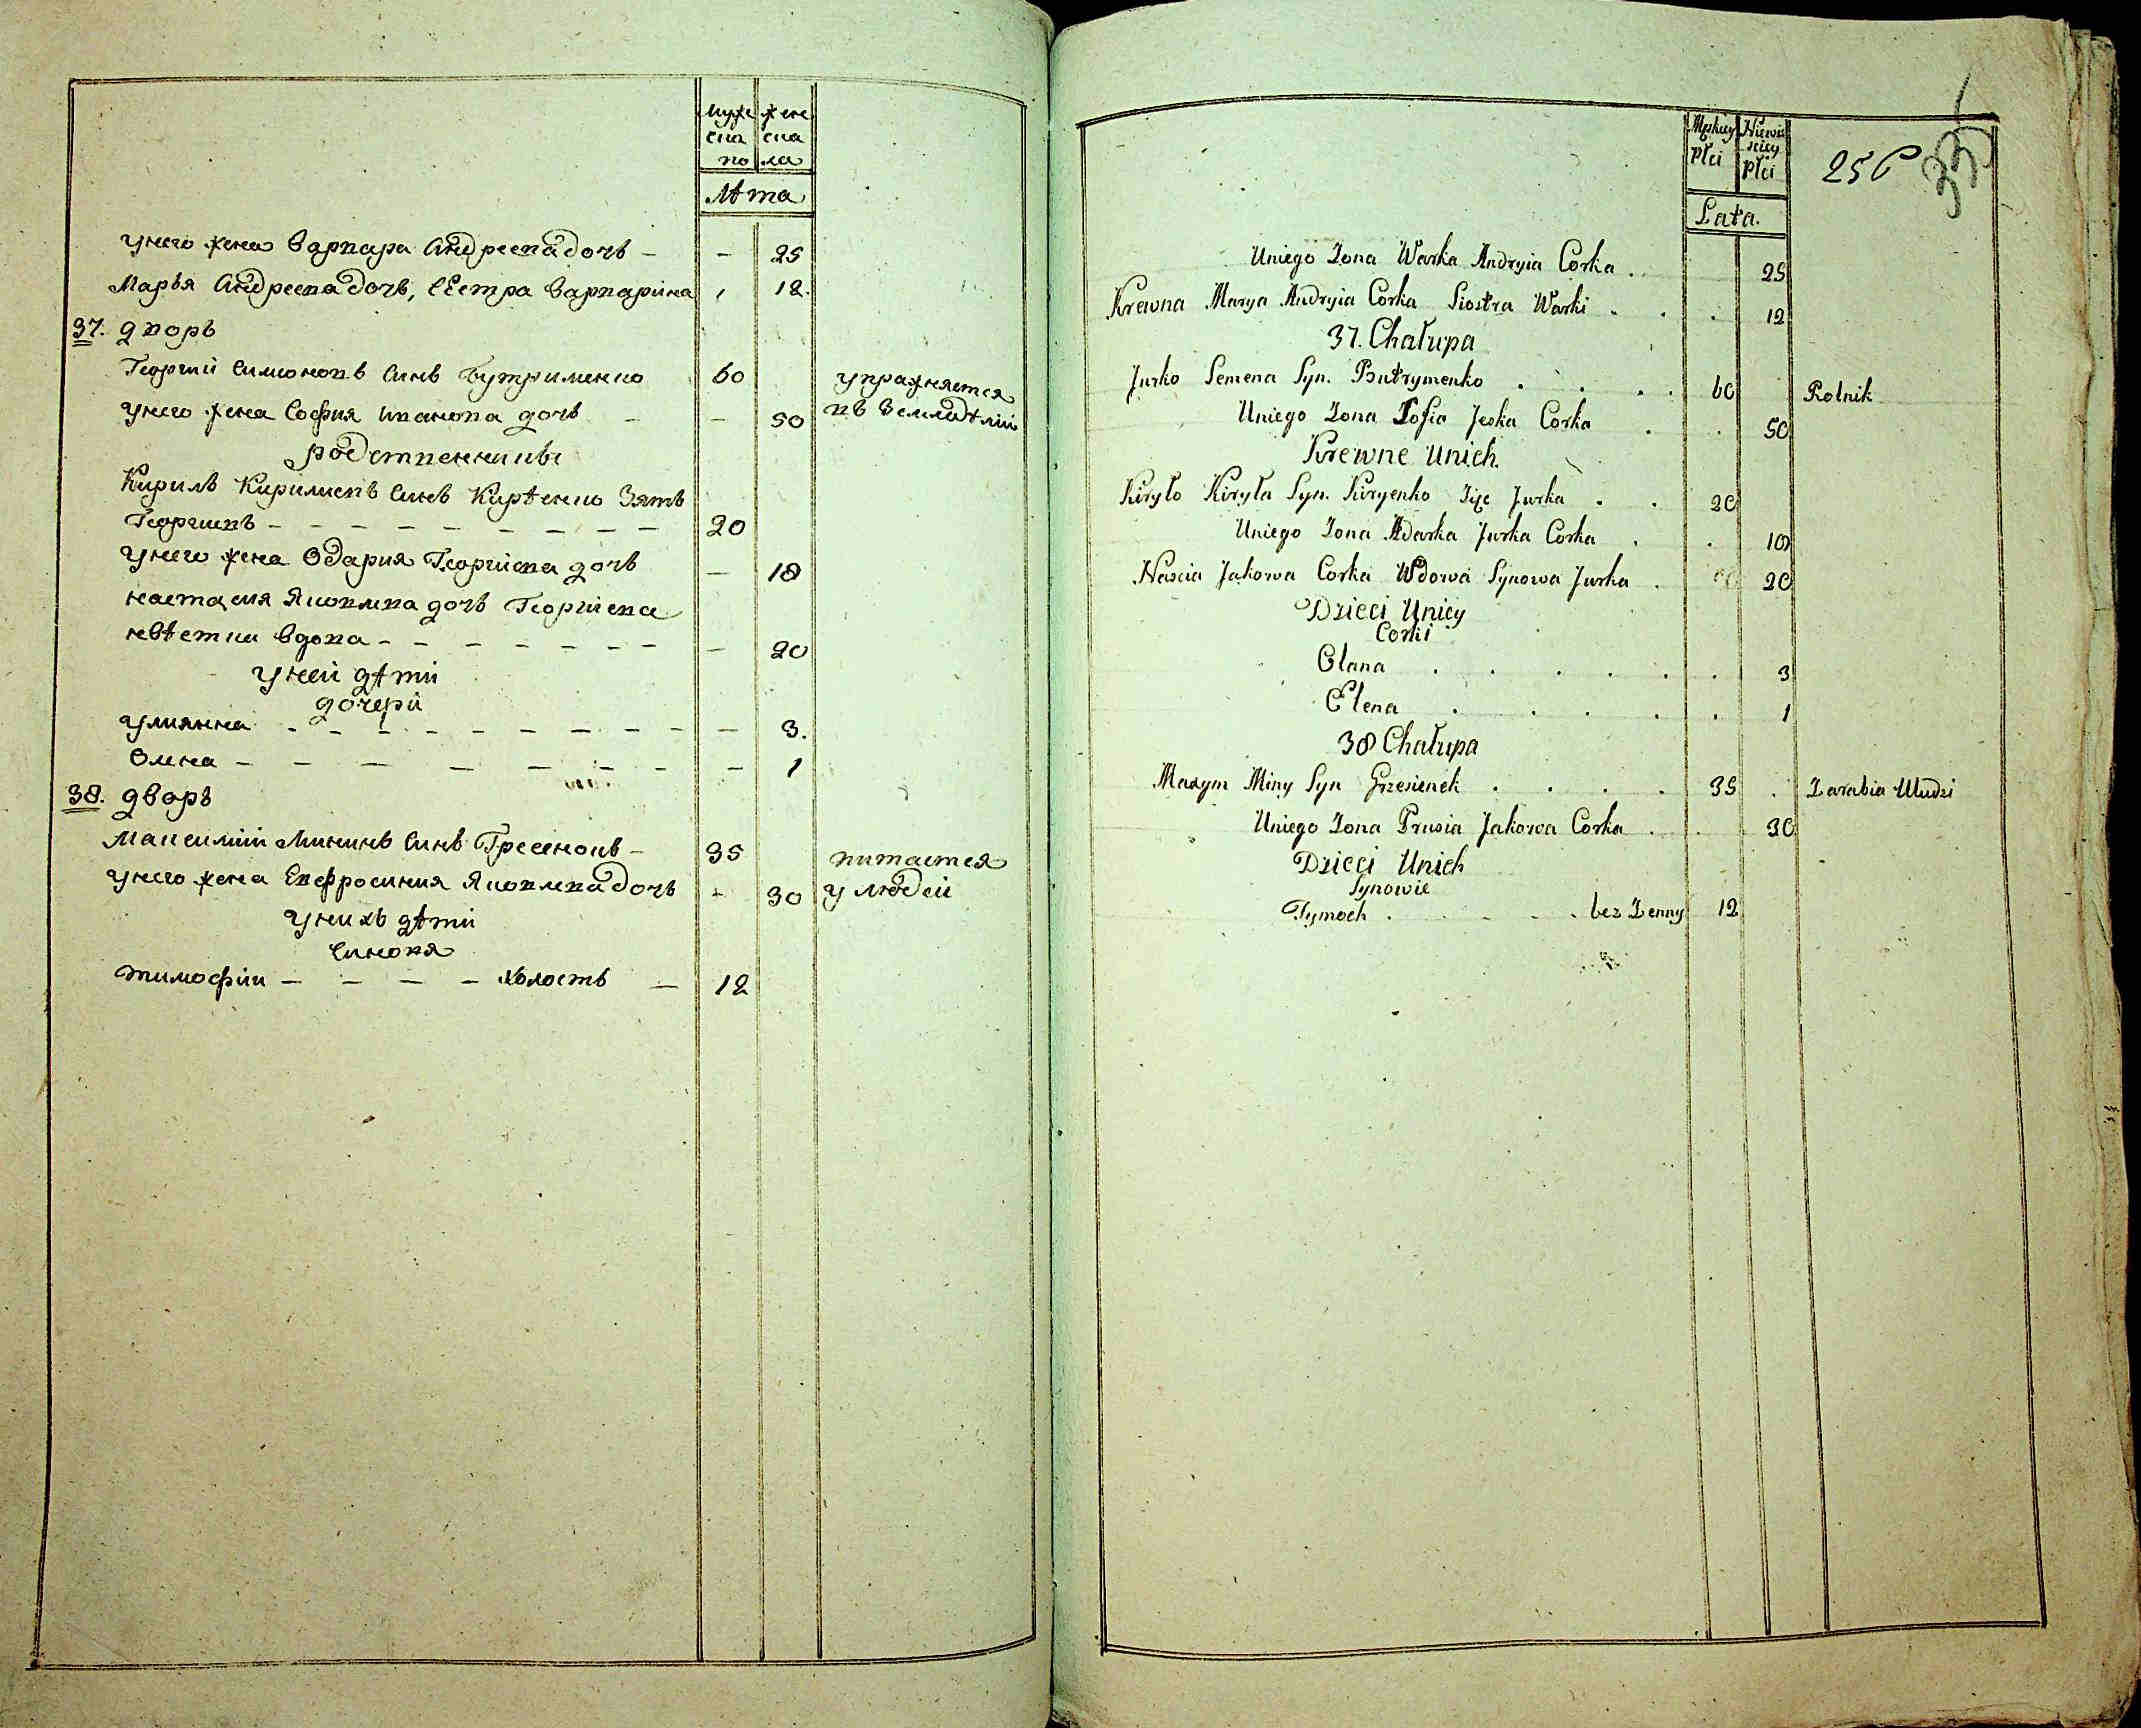 муже жене
ска ска
по ла
Лѣта
унего жена Варвара Андреева дочь — — 25
Марья Андреева дочь, сестра Варварина 12.
37. дворъ
Георгий Симоновъ синъ Бутрименко 60 упражняется
унего жена София Иванова дочь — — 50 въ Земледѣлии
родственники
Кирилъ Кирилиевъ синъ Кирѣенко Зять
Георгиевъ — — — — — — — — — 20
унего жена Одария Георгиева дочь — 18
настасия Яковлева дочь Георгиева
невѣстки вдова — — — — — — — 20
уней дѣти
дочери
улиянна — — — — — — — — — — 3.
Олена — — — — — — — — 1
38. дворъ
Максимий Мининъ синъ Гресенокъ — 35 питается
унего жена Евфросиния Яковлева дочь — 30 у людей
унихъ дѣти
синовя
тимофий — — — — холостъ — 12
Męskiey Niewie
Płci sciey
Płci
Lata.
256
33
Uniego Zona Warka Andryia Corka . 25
Krewna Marya Andryia Corka Siostra Warki . . . 12
37. Chałupa
Jurko Semena Syn. Butrymenko . . . . . 60 Rolnik
Uniego Zona Zofia Jeska Corka . . 50
Krewne Unich.
Kiryło Kiryła Syn. Kiryenko Zięc Jurka . . 20
Uniego Zona Adarka Jurka Corka . . 18
Nascia Jakowa Corka Wdowa Synowa Jurka . 20
Dzieci Unicy
Corki
Olana . . . . . . 3
Elena . . . . . 1
38 Chałupa
Maxym Miny Syn Grzesienek . . . . 35 . Zarabia Uludzi
Uniego Zona Prusia Jakowa Corka . . 30
Dzieci Unich
Synowie
Tymoch . . . . . bez Zenny 12